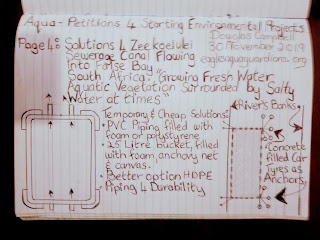 Aqua-Petitions 4 Starting Environmental Projects
Douglas
Page 4: Solutions 4 Zeekoeivlei
30 November 2019
Sewerage Canal Flowing
Into False Bay
South Africa. "Growing Fresh Water
Aquatic Vegetation Surrounded by Salty
Water at times"
Temporary & Cheap Solutions:
• PVC Piping filled with
foam or polystyrene
• 25 Litre bucket, filled
with foam, anchovy net
& canvas.
• Better option HDPE
Piping 4 Durability
River's Banks
Concrete
filled Car
Tyres as
Anchors